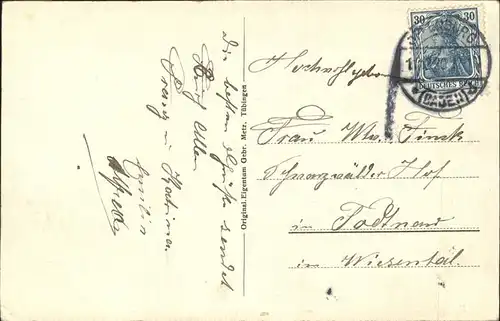 Die besten Grüße sendet
Euch Allen
Franz u. Katrina
Emilie
Alfred
Original.Eigentum Gebr. Metz, Tübingen
30 30
DEUTSCHES REICH
(BADEN)
Hochwohlgeboren
Frau Ww. Finck
Schwarzwälder Hof
in Todtnau
in Wiesental.